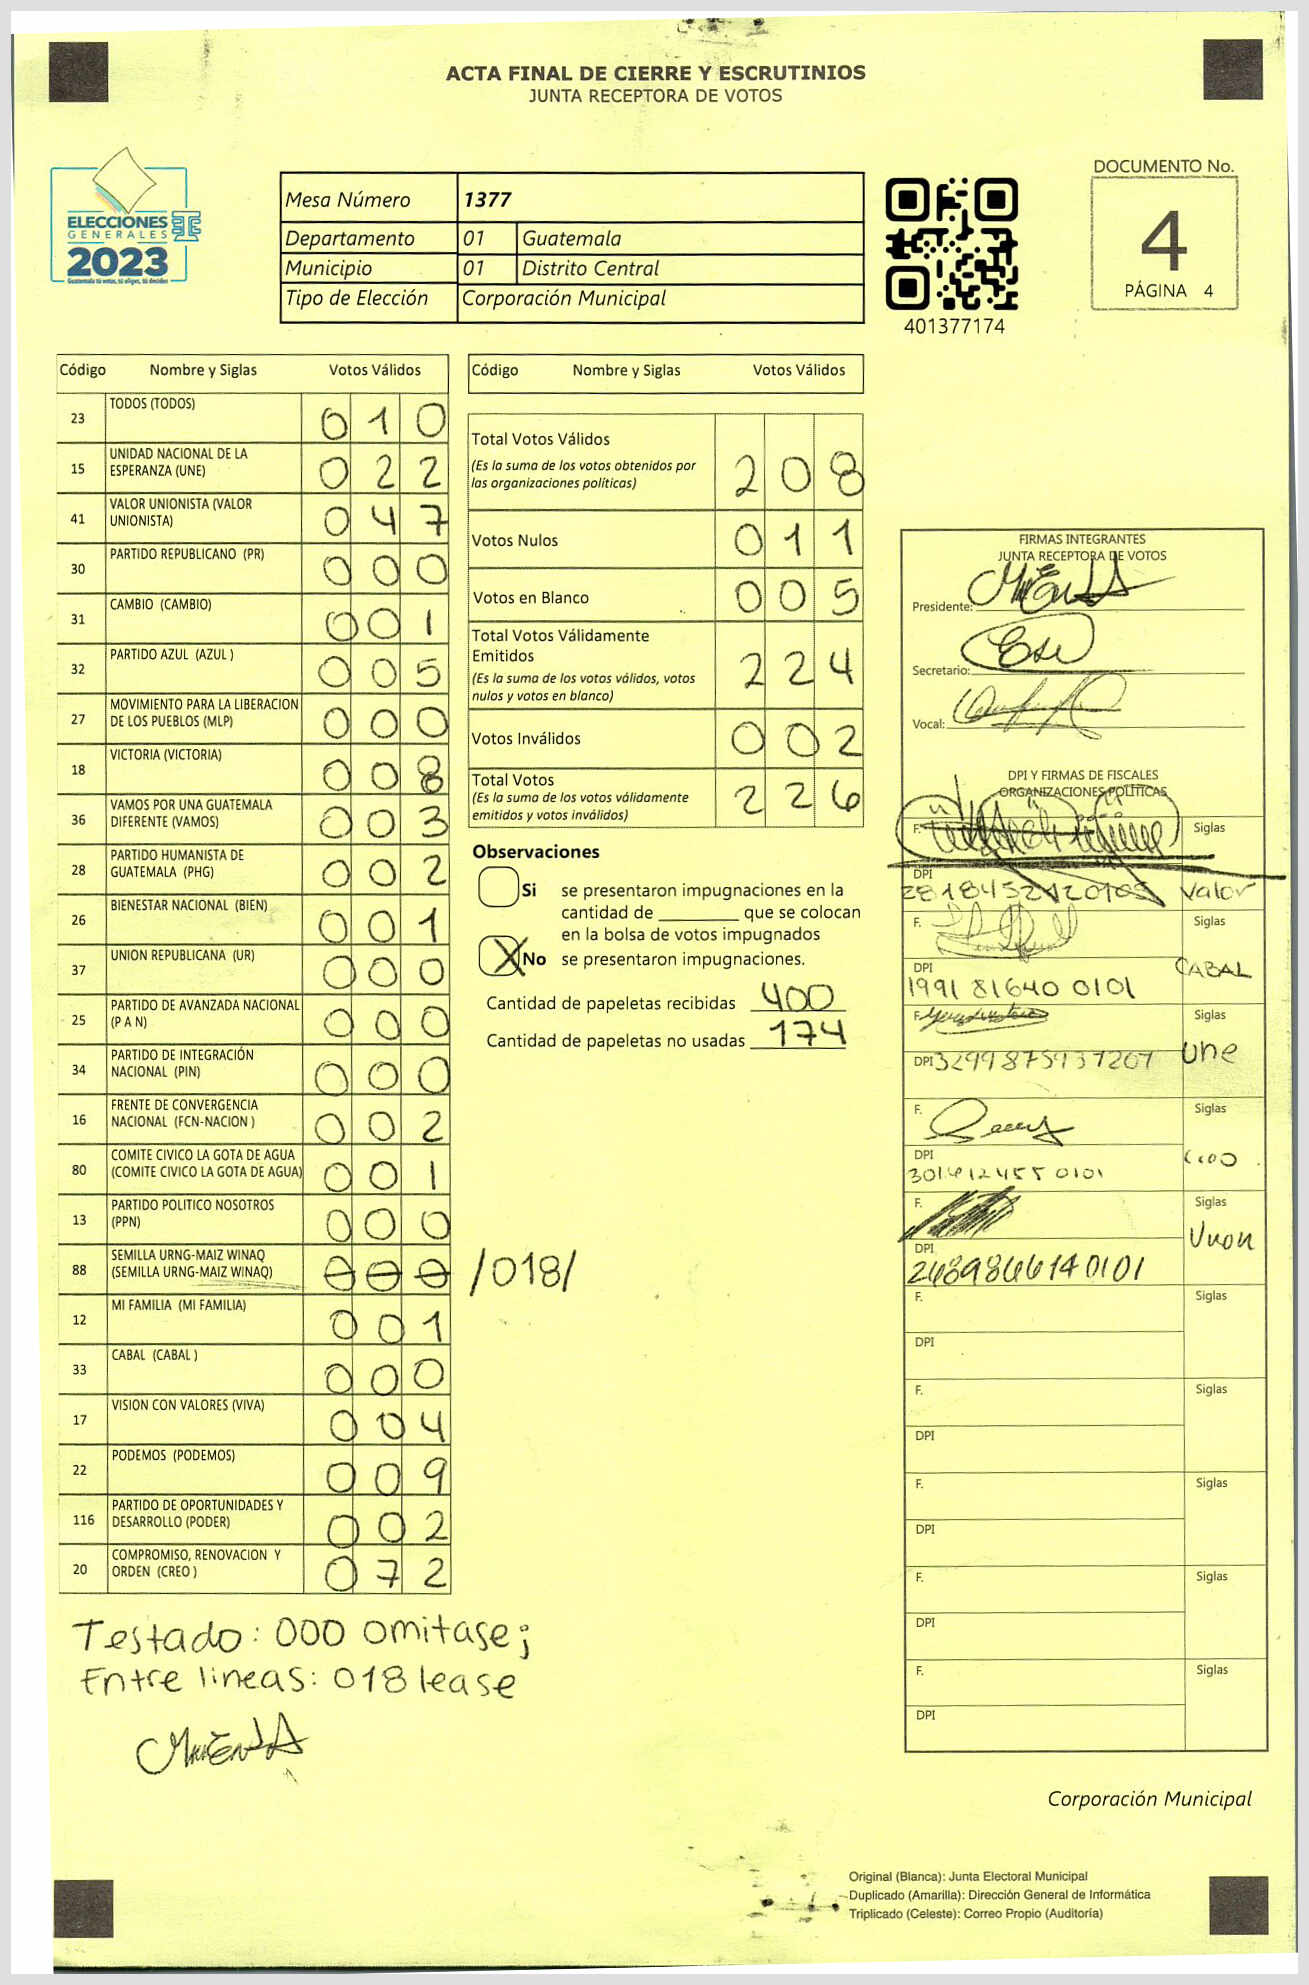 ACTA FINAL DE CIERRE Y ESCRUTINIOS
JUNTA RECEPTORA DE VOTOS
ELECCIONES
GENERALES
2023
Guatemala tú votas, tú eliges, tú decides
Mesa Número 1377
Departamento 01 Guatemala
Municipio 01 Distrito Central
Tipo de Elección Corporación Municipal
401377174
DOCUMENTO No.
4
PÁGINA 4
Código Nombre y Siglas Votos Válidos
23 TODOS (TODOS) 0 1 0
15 UNIDAD NACIONAL DE LA ESPERANZA (UNE) 0 2 2
41 VALOR UNIONISTA (VALOR UNIONISTA) 0 4 7
30 PARTIDO REPUBLICANO (PR) 0 0 0
31 CAMBIO (CAMBIO) 0 0 1
32 PARTIDO AZUL (AZUL ) 0 0 5
27 MOVIMIENTO PARA LA LIBERACION DE LOS PUEBLOS (MLP) 0 0 0
18 VICTORIA (VICTORIA) 0 0 8
36 VAMOS POR UNA GUATEMALA DIFERENTE (VAMOS) 0 0 3
28 PARTIDO HUMANISTA DE GUATEMALA (PHG) 0 0 2
26 BIENESTAR NACIONAL (BIEN) 0 0 1
37 UNION REPUBLICANA (UR) 0 0 0
25 PARTIDO DE AVANZADA NACIONAL (P A N) 0 0 0
34 PARTIDO DE INTEGRACIÓN NACIONAL (PIN) 0 0 0
16 FRENTE DE CONVERGENCIA NACIONAL (FCN-NACION ) 0 0 2
80 COMITE CIVICO LA GOTA DE AGUA (COMITE CIVICO LA GOTA DE AGUA) 0 0 1
13 PARTIDO POLITICO NOSOTROS (PPN) 0 0 0
88 SEMILLA URNG-MAIZ WINAQ (SEMILLA URNG-MAIZ WINAQ) 0 0 0 /018/
12 MI FAMILIA (MI FAMILIA) 0 0 1
33 CABAL (CABAL ) 0 0 0
17 VISION CON VALORES (VIVA) 0 0 4
22 PODEMOS (PODEMOS) 0 0 9
116 PARTIDO DE OPORTUNIDADES Y DESARROLLO (PODER) 0 0 2
20 COMPROMISO, RENOVACION Y ORDEN (CREO ) 0 7 2
Testado: 000 omitase;
Entre lineas: 018 lease
Código Nombre y Siglas Votos Válidos
Total Votos Válidos 2 0 8
(Es la suma de los votos obtenidos por
las organizaciones políticas)
Votos Nulos 0 1 1
Votos en Blanco 0 0 5
Total Votos Válidamente
Emitidos 2 2 4
(Es la suma de los votos válidos, votos
nulos y votos en blanco)
Votos Inválidos 0 0 2
Total Votos 2 2 6
(Es la suma de los votos válidamente
emitidos y votos inválidos)
Observaciones
Si se presentaron impugnaciones en la
cantidad de ________ que se colocan
en la bolsa de votos impugnados
X No se presentaron impugnaciones.
Cantidad de papeletas recibidas 400
Cantidad de papeletas no usadas 174
FIRMAS INTEGRANTES
JUNTA RECEPTORA DE VOTOS
Presidente:
Secretario:
Vocal:
DPI Y FIRMAS DE FISCALES
ORGANIZACIONES POLÍTICAS
F. Siglas
DPI Valor
F. Siglas
DPI CABAL
1991 81640 0101
F. Siglas
DPI 3299875937207 Une
F. Siglas
DPI
F. Siglas
DPI
F. Siglas
DPI
F. Siglas
DPI
F. Siglas
DPI
F. Siglas
DPI
F. Siglas
DPI
Corporación Municipal
Original (Blanca): Junta Electoral Municipal
Duplicado (Amarilla): Dirección General de Informática
Triplicado (Celeste): Correo Propio (Auditoría)